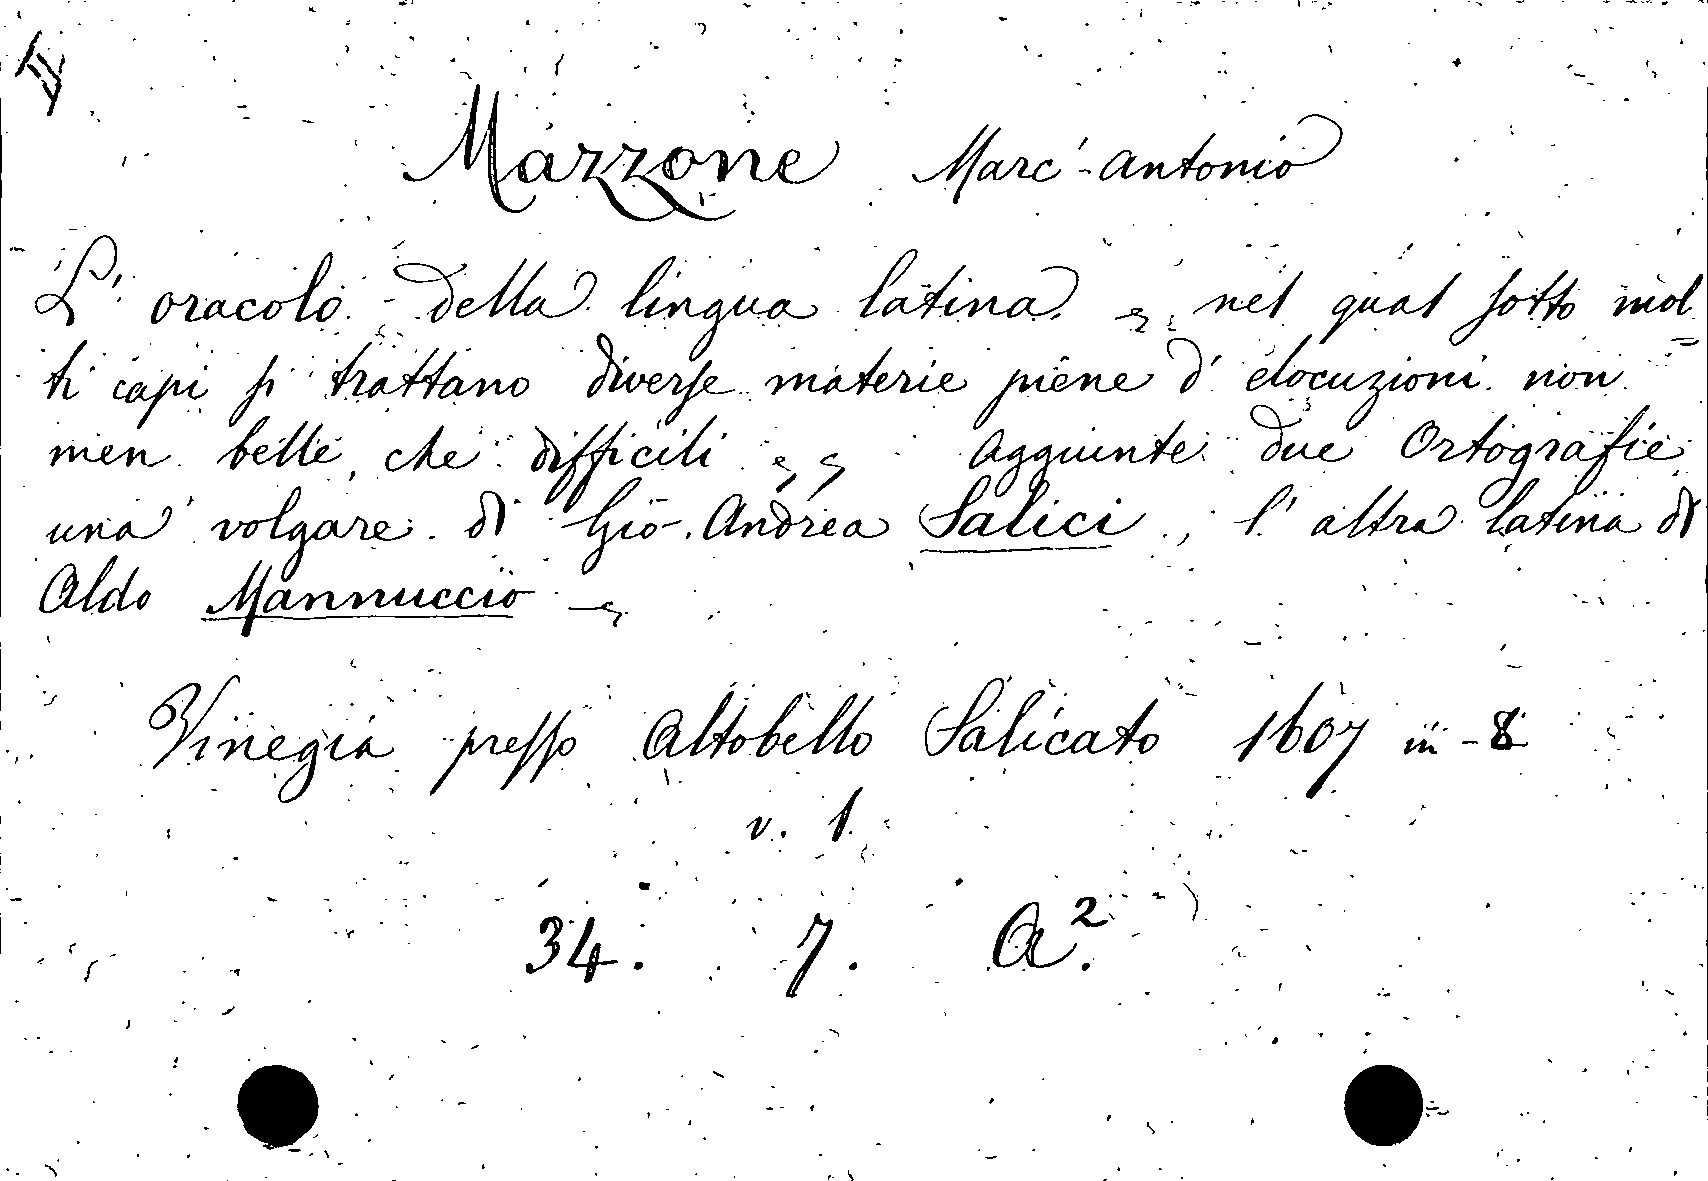 Mazzone Marc'-Antonio
L' oracolo della lingua latina, nel qual sotto mol=
ti capi si trattano diverse materie piene d' elocuzioni non
men belle, che difficili Aggiunte due Ortografie
una volgare di Gio. Andrea Salici, l' altra latina di
Aldo Mannuccio
Vinegia presso Altobello Salicato 1607 in-8
v. 1.
34. 7. A².